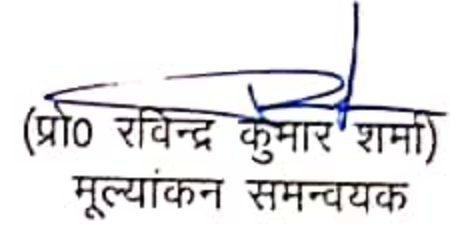 (प्रो0 रविन्द्र कुमार शर्मा)
मूल्यांकन समन्वयक